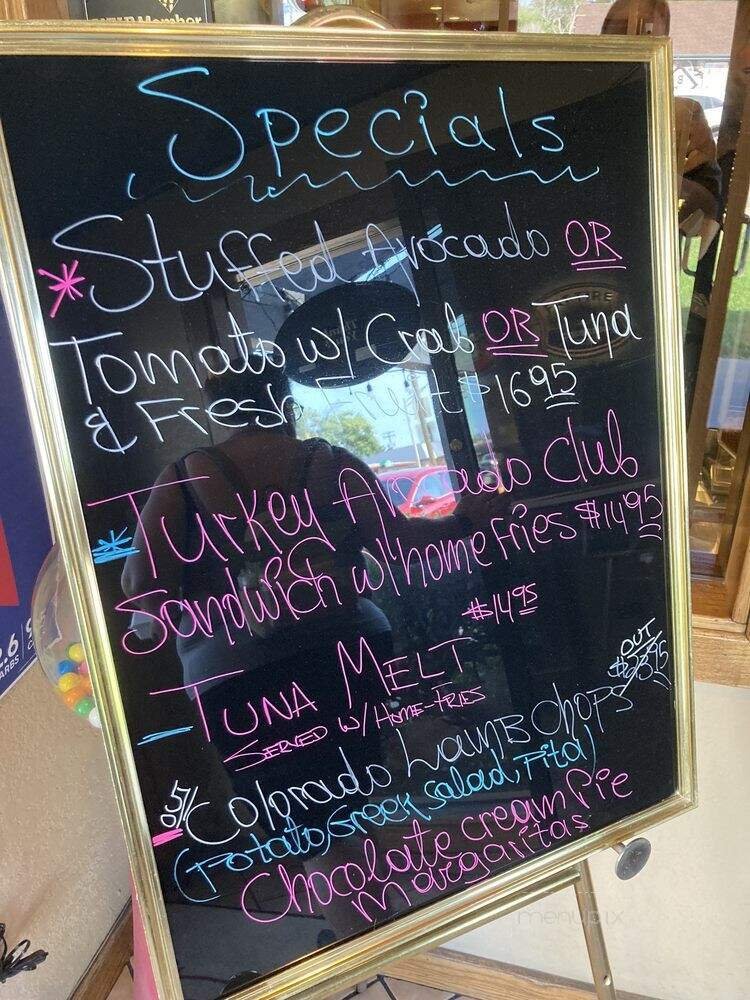 Member
Specials
*Stuffed Avocado OR
Tomato w/ Crab OR Tuna
& Fresh Fruit $16 95
*Turkey Avocado Club
Sandwich w/ home Fries $14 95
$14 95
- TUNA MELT
SERVED W/ HOME-FRIES
OUT
Colorado LAMB Chops
(Potato, Greek salad, Pita)
Chocolate cream Pie
Margaritas
menupix